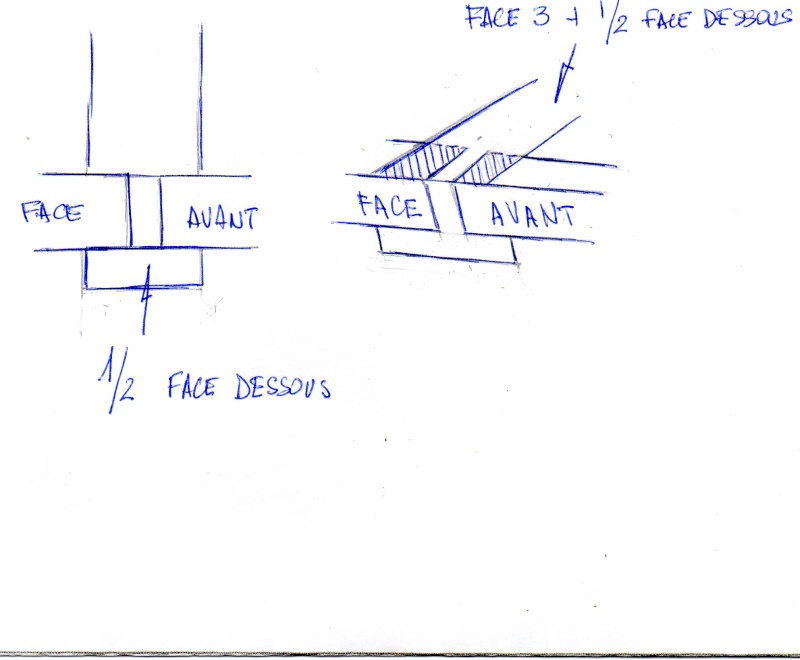 FACE 3 + 1/2 FACE DESSOUS
FACE AVANT
FACE AVANT
1/2 FACE DESSOUS